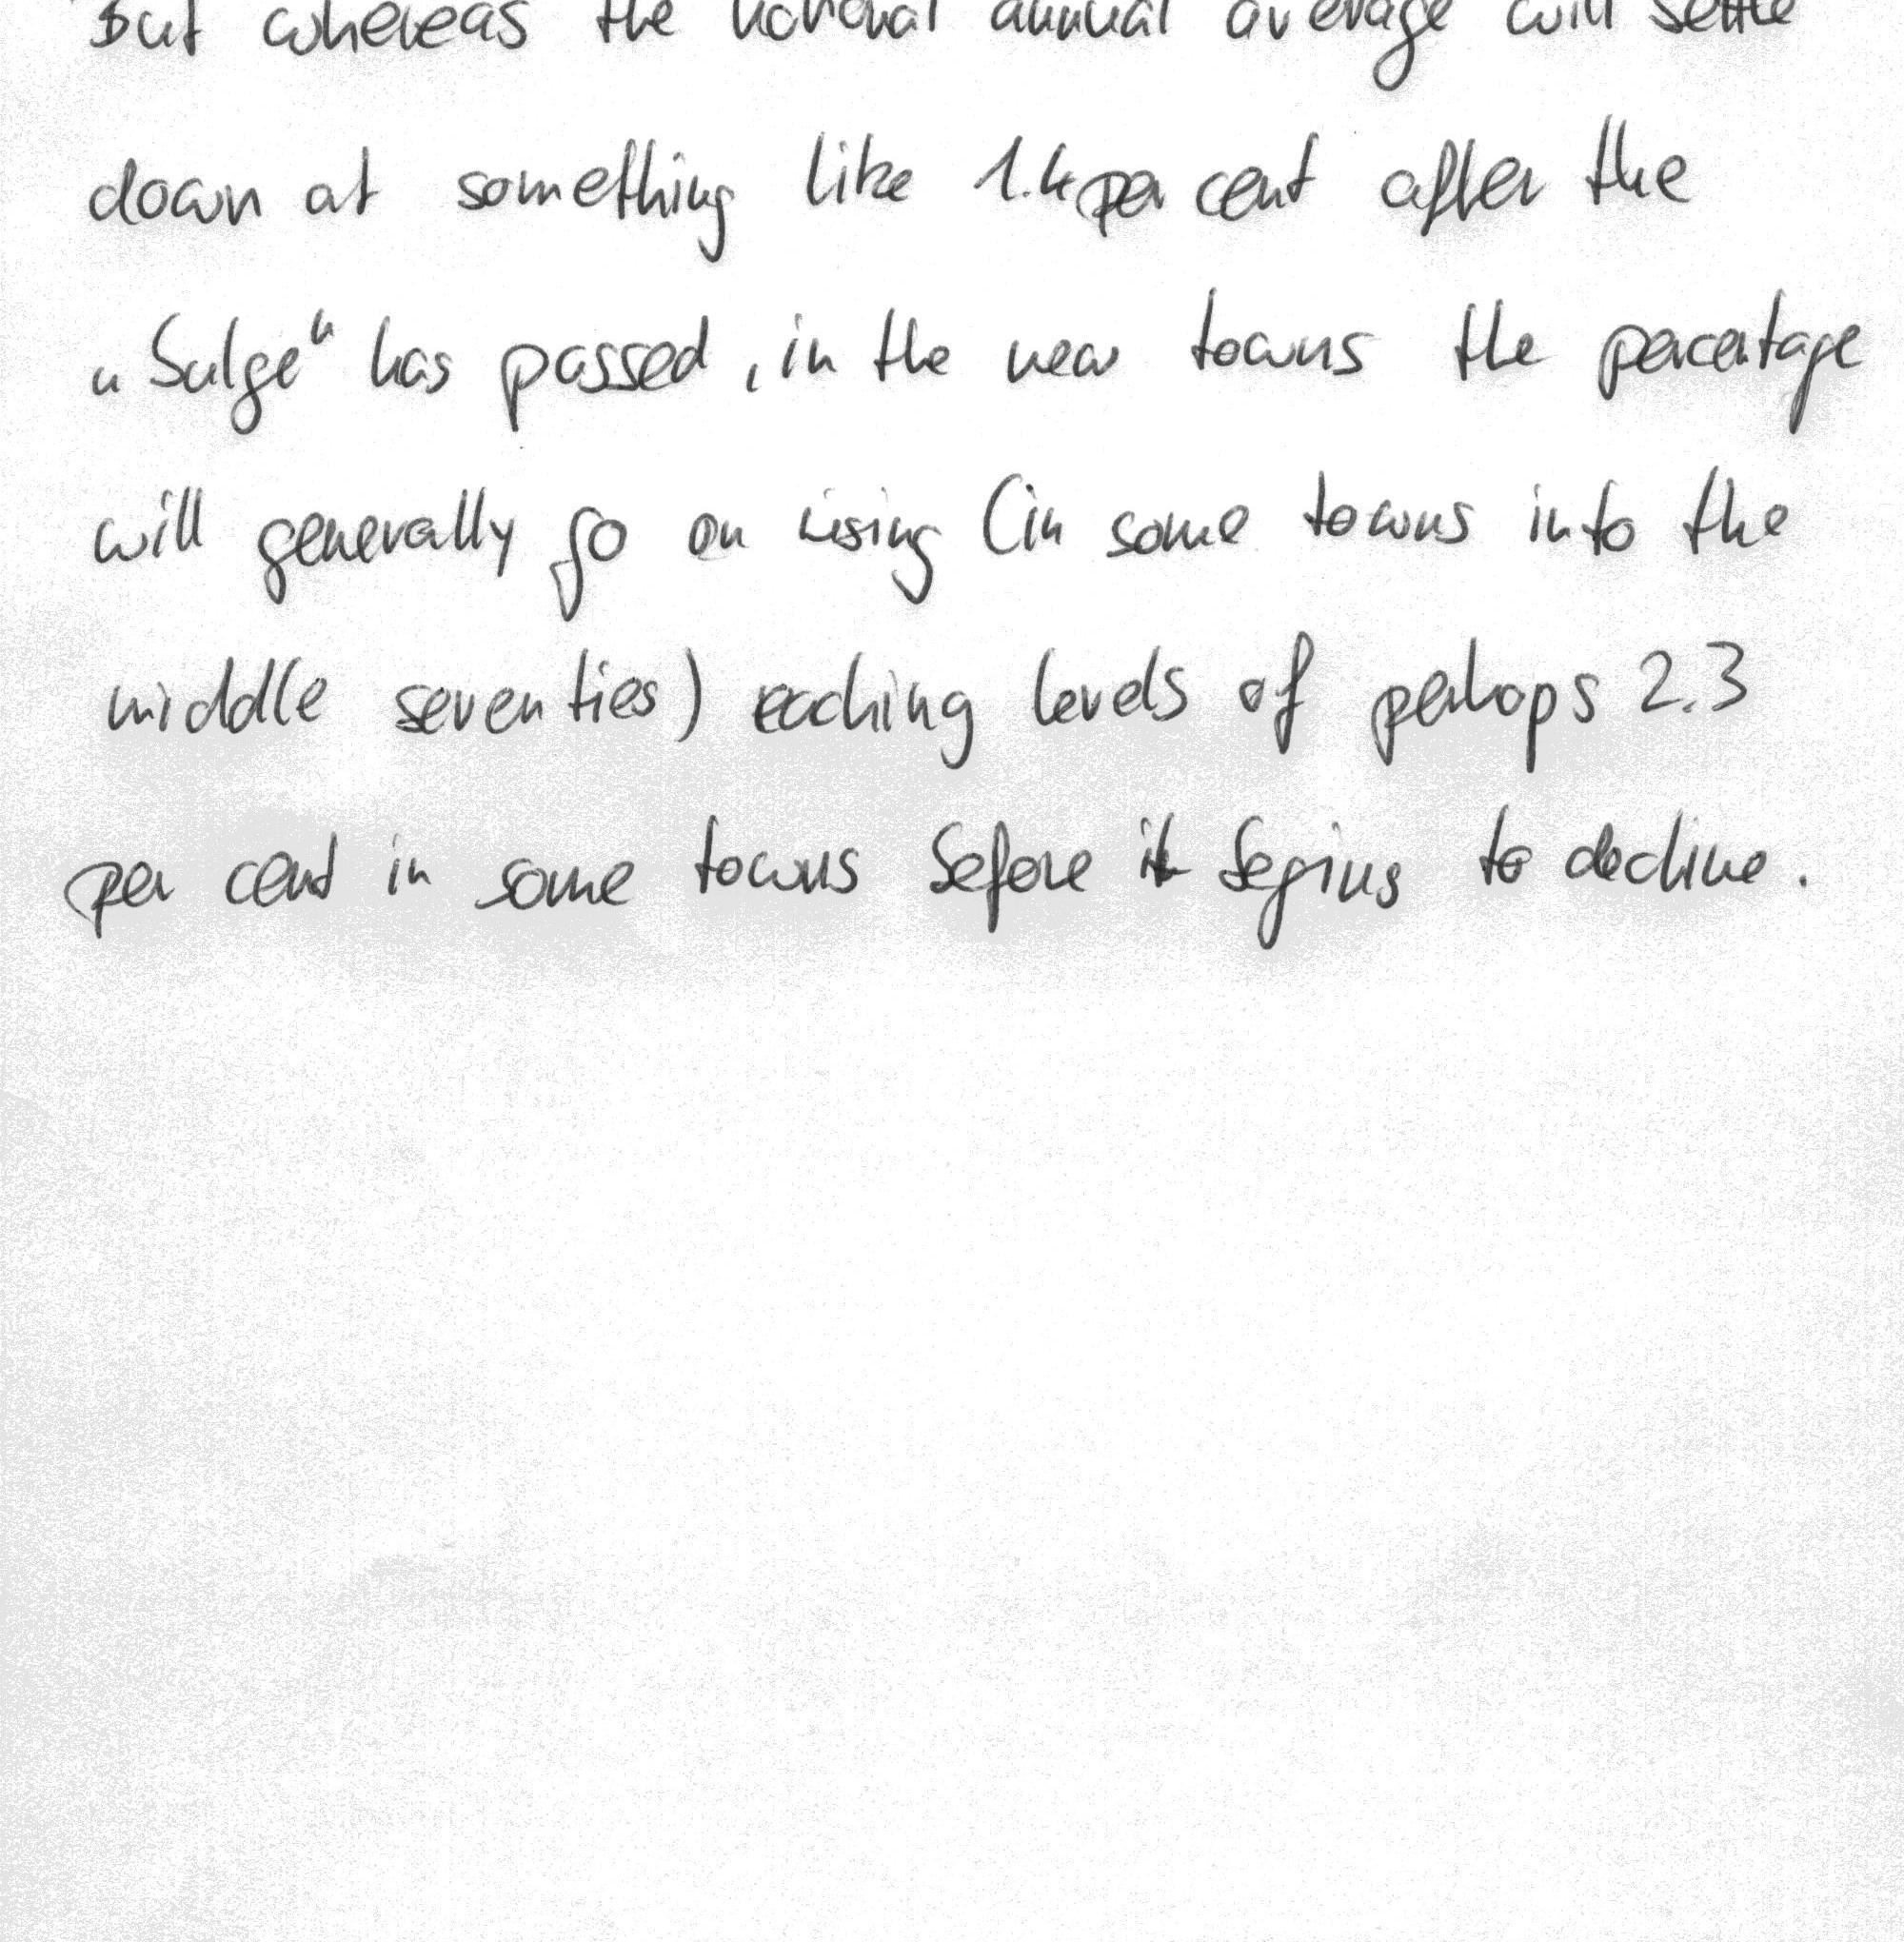 But whereas the national annual average will settle
down at something like 1.4 per cent after the
„Bulge“ has passed, in the new towns the percentage
will generally go on rising (in some towns into the
middle seventies) reaching levels of perhaps 2.3
per cent in some towns before it begins to decline.